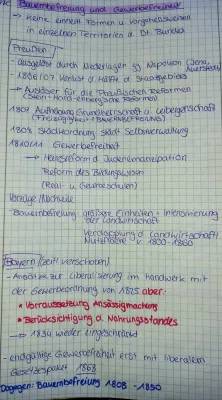 Bauernbefreiung und Gewerbefreiheit
→ keine einheitl. Formen u. Vorgehensweisen
in einzelnen Territorien d. Dt. Bundes
Preußen
- ausgelöst durch Niederlagen gg. Napoleon (Jena,
Auerstedt)
1806/07 Verlust d. Hälfte d. Staatsgebietes
→ Auslöser für die Preußischen Reformen
(Stein-Hardenberg'sche Reformen)
1807 Aufhebung Grundherrschaft u. Leibeigenschaft
(Freizügigkeit + BAUERNBEFREIUNG)
1808 Städteordnung städt. Selbstverwaltung
1810/11 Gewerbefreiheit
→ Heeresreform u. Judenemanzipation
Reform des Bildungswesen
(Real- u. Gewerbeschulen)
Vorzüge/Nachteile
Bauernbefreiung: größere Einheiten - Intensivierung
der Landwirtschaft
Verdopplung d. Landwirtschaftl.
Nutzfläche v. 1800-1860
Bayern (zeitl. verschoben)
- Ansätze zur Liberalisierung im Handwerk mit
der Gewerbeordnung von 1825 aber:
* Vorraussetzung Ansässigmachung
* Berücksichtigung d. Nahrungsstandes
→ 1834 wieder eingeschränkt
- endgültige Gewerbefreiheit erst mit liberalem
Gesetzespaket 1868
Dagegen: Bauernbefreiung 1808 - 1850